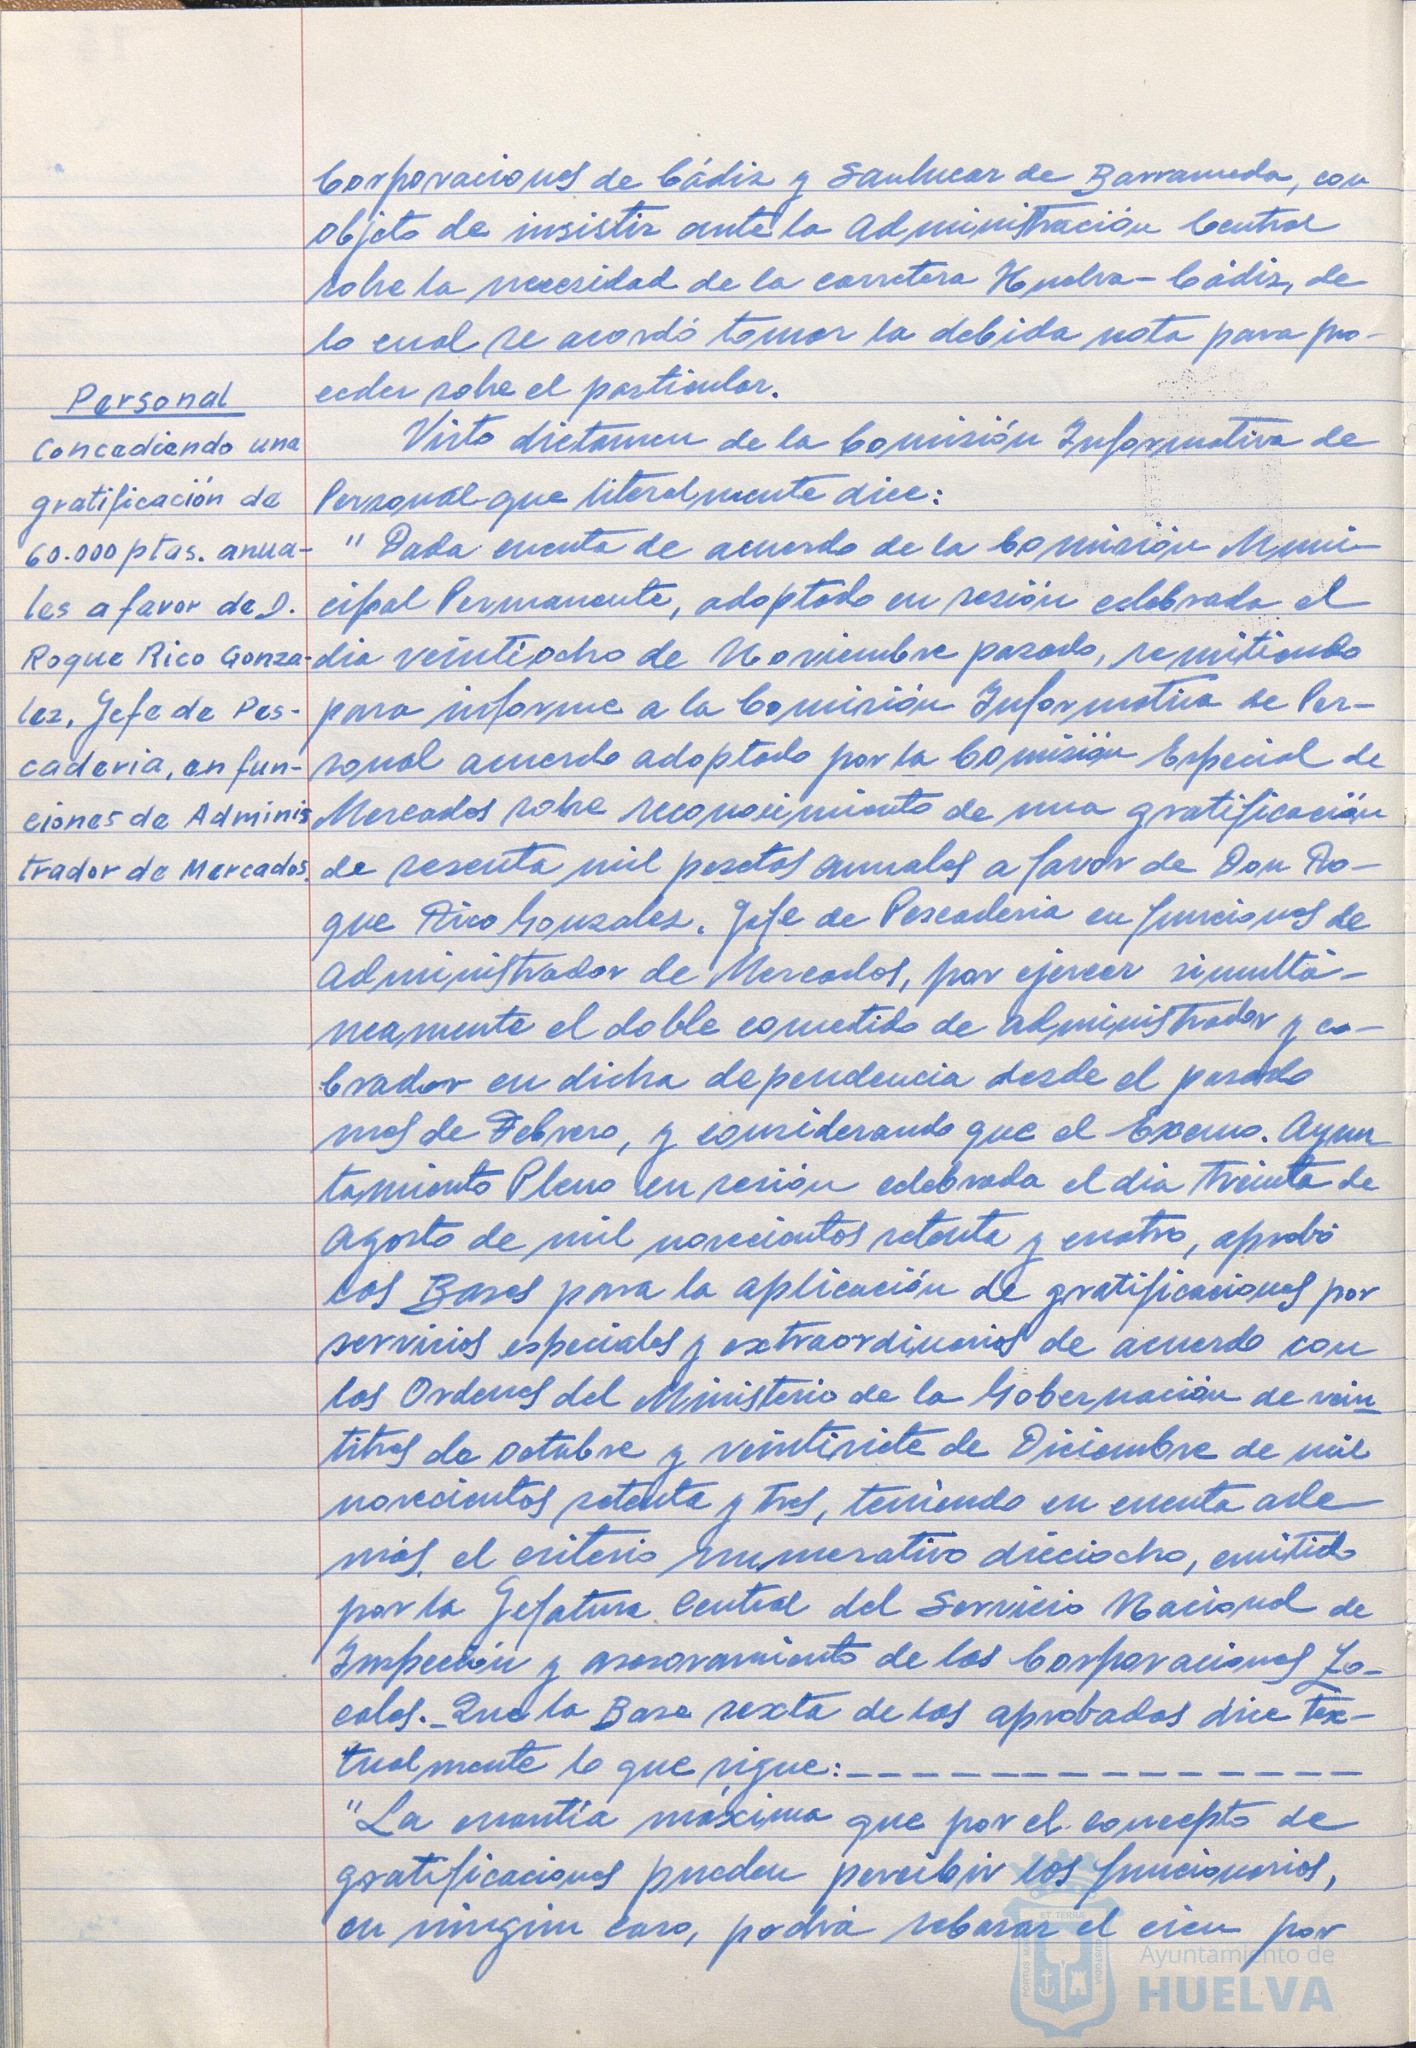 Corporaciones de Cádiz y Sanlucar de Barrameda, con
objeto de insistir ante la Administración Central
sobre la necesidad de la carretera Huelva-Cádiz, de
lo cual se acordó tomar la debida nota para pro-
ceder sobre el particular.
Personal
Concediendo una
gratificación de
60.000 ptas. anua-
les a favor de D.
Roque Rico Gonza-
lez, Jefe de Pes-
caderia, en fun-
ciones de Adminis
trador de Mercados.
Visto dictamen de la Comisión Informativa de
Personal que literalmente dice:
" Dada cuenta de acuerdo de la Comisión Muni-
cipal Permanente, adoptado en sesión celebrada el
dia veintiocho de Noviembre pasado, remitiendo
para informe a la Comisión Informativa de Per-
sonal acuerdo adoptado por la Comisión Especial de
Mercados sobre reconocimiento de una gratificación
de sesenta mil pesetas anuales a favor de Don Ro-
que Rico Gonzalez, Jefe de Pescaderia en funciones de
Administrador de Mercados, por ejercer simultá-
neamente el doble cometido de administrador y co-
brador en dicha dependencia desde el pasado
mes de Febrero, y considerando que el Excmo. Ayun
tamiento Pleno en sesión celebrada el dia treinta de
Agosto de mil novecientos setenta y cuatro, aprobó
las Bases para la aplicación de gratificaciones por
servicios especiales y extraordinarios de acuerdo con
las Ordenes del Ministerio de la Gobernación de vein
titres de octubre y veintisiete de Diciembre de mil
novecientos setenta y tres, teniendo en cuenta ade
más, el criterio numerativo dieciocho, emitido
por la Jefatura Central del Servicio Nacional de
Inspección y asesoramiento de las Corporaciones Lo-
cales. - Que la Base sexta de las aprobadas dice tex-
tualmente lo que sigue: - - - - - - - - - - - - - -
"La cuantía máxima que por el concepto de
gratificaciones pueden percibir los funcionarios,
en ningun caso, podrá rebasar el cien por
PORTUS MARIS ET TERRAE CUSTODIA
Ayuntamiento de
HUELVA